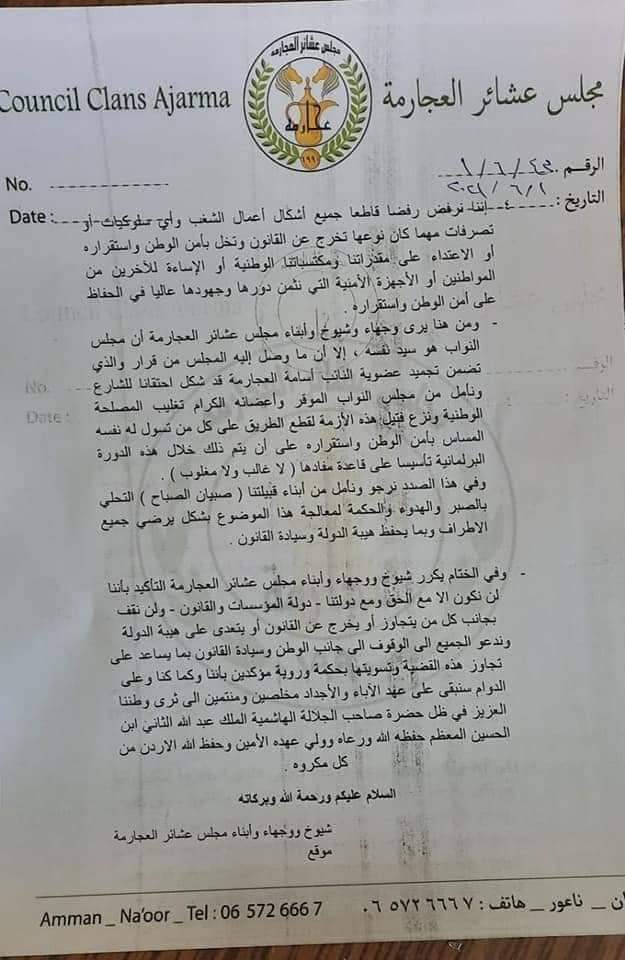 مجلس عشائر العجارمة
Council Clans Ajarma
مجلس عشائر العجارمة
عجارمة
٦٩٩
الرقم
No.
التاريخ : ٢٠٢١/٦/١
Date :
٤- إننا نرفض رفضا قاطعا جميع أشكال أعمال الشغب وأي سلوكيات أو
تصرفات مهما كان نوعها تخرج عن القانون وتخل بأمن الوطن واستقراره
أو الاعتداء على مقدراتنا ومكتسباتنا الوطنية أو الإساءة للآخرين من
المواطنين أو الأجهزة الأمنية التي نثمن دورها وجهودها عاليا في الحفاظ
على أمن الوطن واستقراره .
- ومن هنا يرى وجهاء وشيوخ وأبناء مجلس عشائر العجارمة أن مجلس
النواب هو سيد نفسه ، إلا أن ما وصل إليه المجلس من قرار والذي
تضمن تجميد عضوية النائب أسامة العجارمة قد شكل احتقانا للشارع
ونأمل من مجلس النواب الموقر وأعضائه الكرام تغليب المصلحة
الوطنية ونزع فتيل هذه الأزمة لقطع الطريق على كل من تسول له نفسه
المساس بأمن الوطن واستقراره على أن يتم ذلك خلال هذه الدورة
البرلمانية تأسيسا على قاعدة مفادها ( لا غالب ولا مغلوب ) .
وفي هذا الصدد نرجو ونأمل من أبناء قبيلتنا ( صبيان الصباح ) التحلي
بالصبر والهدوء والحكمة لمعالجة هذا الموضوع بشكل يرضي جميع
الاطراف وبما يحفظ هيبة الدولة وسيادة القانون .
- وفي الختام يكرر شيوخ ووجهاء وأبناء مجلس عشائر العجارمة التأكيد بأننا
لن نكون الا مع الحق ومع دولتنا - دولة المؤسسات والقانون - ولن نقف
بجانب كل من يتجاوز أو يخرج عن القانون أو يتعدى على هيبة الدولة
وندعو الجميع الى الوقوف الى جانب الوطن وسيادة القانون بما يساعد على
تجاوز هذه القضية وتسويتها بحكمة وروية مؤكدين بأننا وكما كنا وعلى
الدوام سنبقى على عهد الآباء والأجداد مخلصين ومنتمين الى ثرى وطننا
العزيز في ظل حضرة صاحب الجلالة الهاشمية الملك عبد الله الثاني ابن
الحسين المعظم حفظه الله ورعاه وولي عهده الأمين وحفظ الله الاردن من
كل مكروه .
السلام عليكم ورحمة الله وبركاته
شيوخ ووجهاء وأبناء مجلس عشائر العجارمة
موقع
ان _ ناعور _ هاتف : ٠٦ ٥٧٢ ٦٦٦٧
Amman _ Na'oor _ Tel : 06 572 666 7